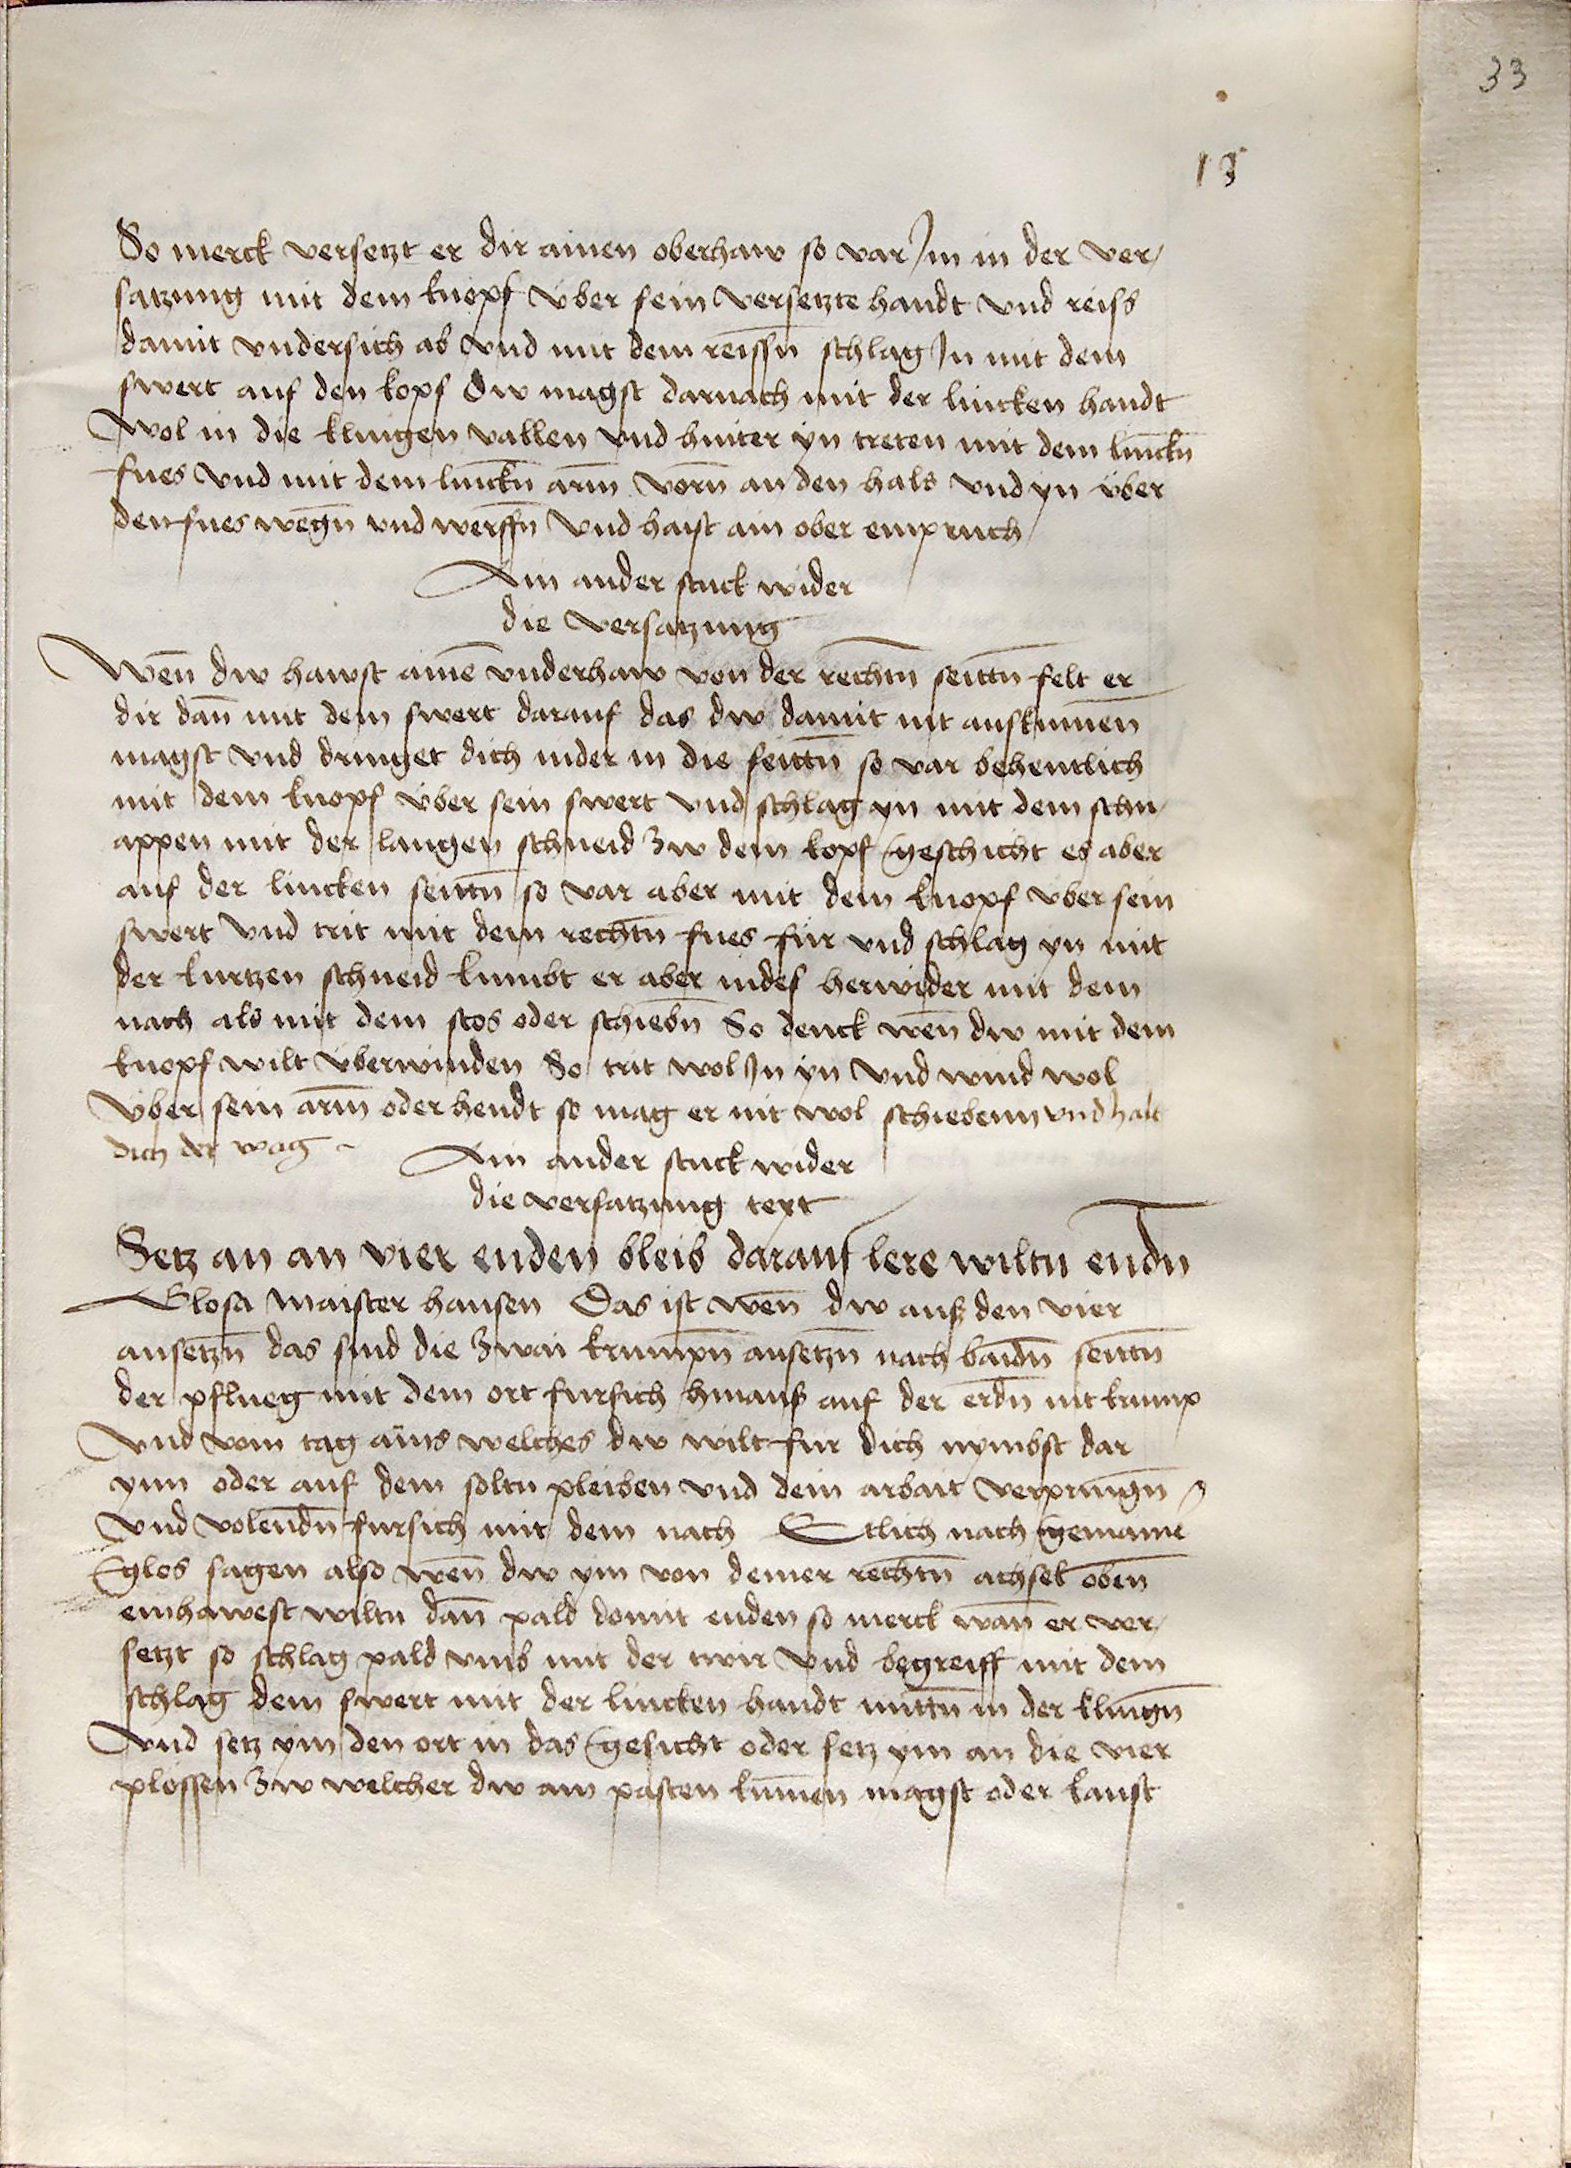 33
13
So merck versetzt er dir ainen oberhaw so var Jm in der ver/
satzung mit dem knopf über sein versetzte handt vnd reiss
damit vndersich ab vnd mit dem reissn̄ schlag Jn mit dem
swert auf den kopf Dw magst darnach mit der lincken handt
wol in die klingen vallen vnd hinter yn treten mit dem linckn̄
fues vnd mit dem linckn̄ arm̄ vorn̄ an den hals vnd yn über
den fues wegn̄ vnd werffn̄ vnd haist ain ober einpruch
Ain ander stuck wider
die versatzung
Wen̄ dw hawst aine͞ vnderhaw von der rechtn̄ seittn̄ felt er
dir dan̄ mit dem swert darauf das dw damit nit aufkumen̄
magst vnd dringet dich nider in die seittn̄ so var behentlich
mit dem knopf über sein swert vnd schlag yn mit dem schn/
appen mit der langen schneid zw dem kopf geschicht es aber
auf der lincken seittn̄ so var aber mit dem knopf über sein
swert vnd trit mit dem rechtn̄ fues für vnd schlag yn mit
der kurtzen schneid kumbt er aber indes herwider mit dem
nach als mit dem stos oder schiebn̄ So denck wen̄ dw mit dem
knopf wilt überwinden So trit wol Jn yn vnd wind wol
über sein arm̄ oder hendt so mag er nit wol schiebenn vnd halt
dich der wag ~
Ain ander stuck wider
die versatzung text
Setz an an vier enden bleib darauf lere wiltu endn̄
Glosa Maister hansen Das ist wen̄ dw auß den vier
ansetzn̄ das sind die zwai krumpn̄ ansetzn̄ nach baidn̄ seittn̄
der pflueg mit dem ort fursich hinauß auf der erdn̄ nit krump
vnd vom tag ains welches dw wilt für dich nymbst dar
ynn oder auf dem soltu pleiben vnd dein arbait verpringn̄
vnd volendn̄ fursich mit dem nach Etlich nach gemaine͞
glos sagen also wen̄ dw ym von deiner rechtn̄ achsel oben̄
einhawest wiltu dan̄ pald domit enden so merck wan̄ er ver/
setzt so schlag pald vmb mit der twir vnd begreiff mit dem
schlag dem swert mit der lincken handt mittn̄ in der klingn̄
vnd setz ym den ort in das gesicht oder setz ym an die vier
plossen zw welcher dw am pasten kumen̄ magst oder kanst